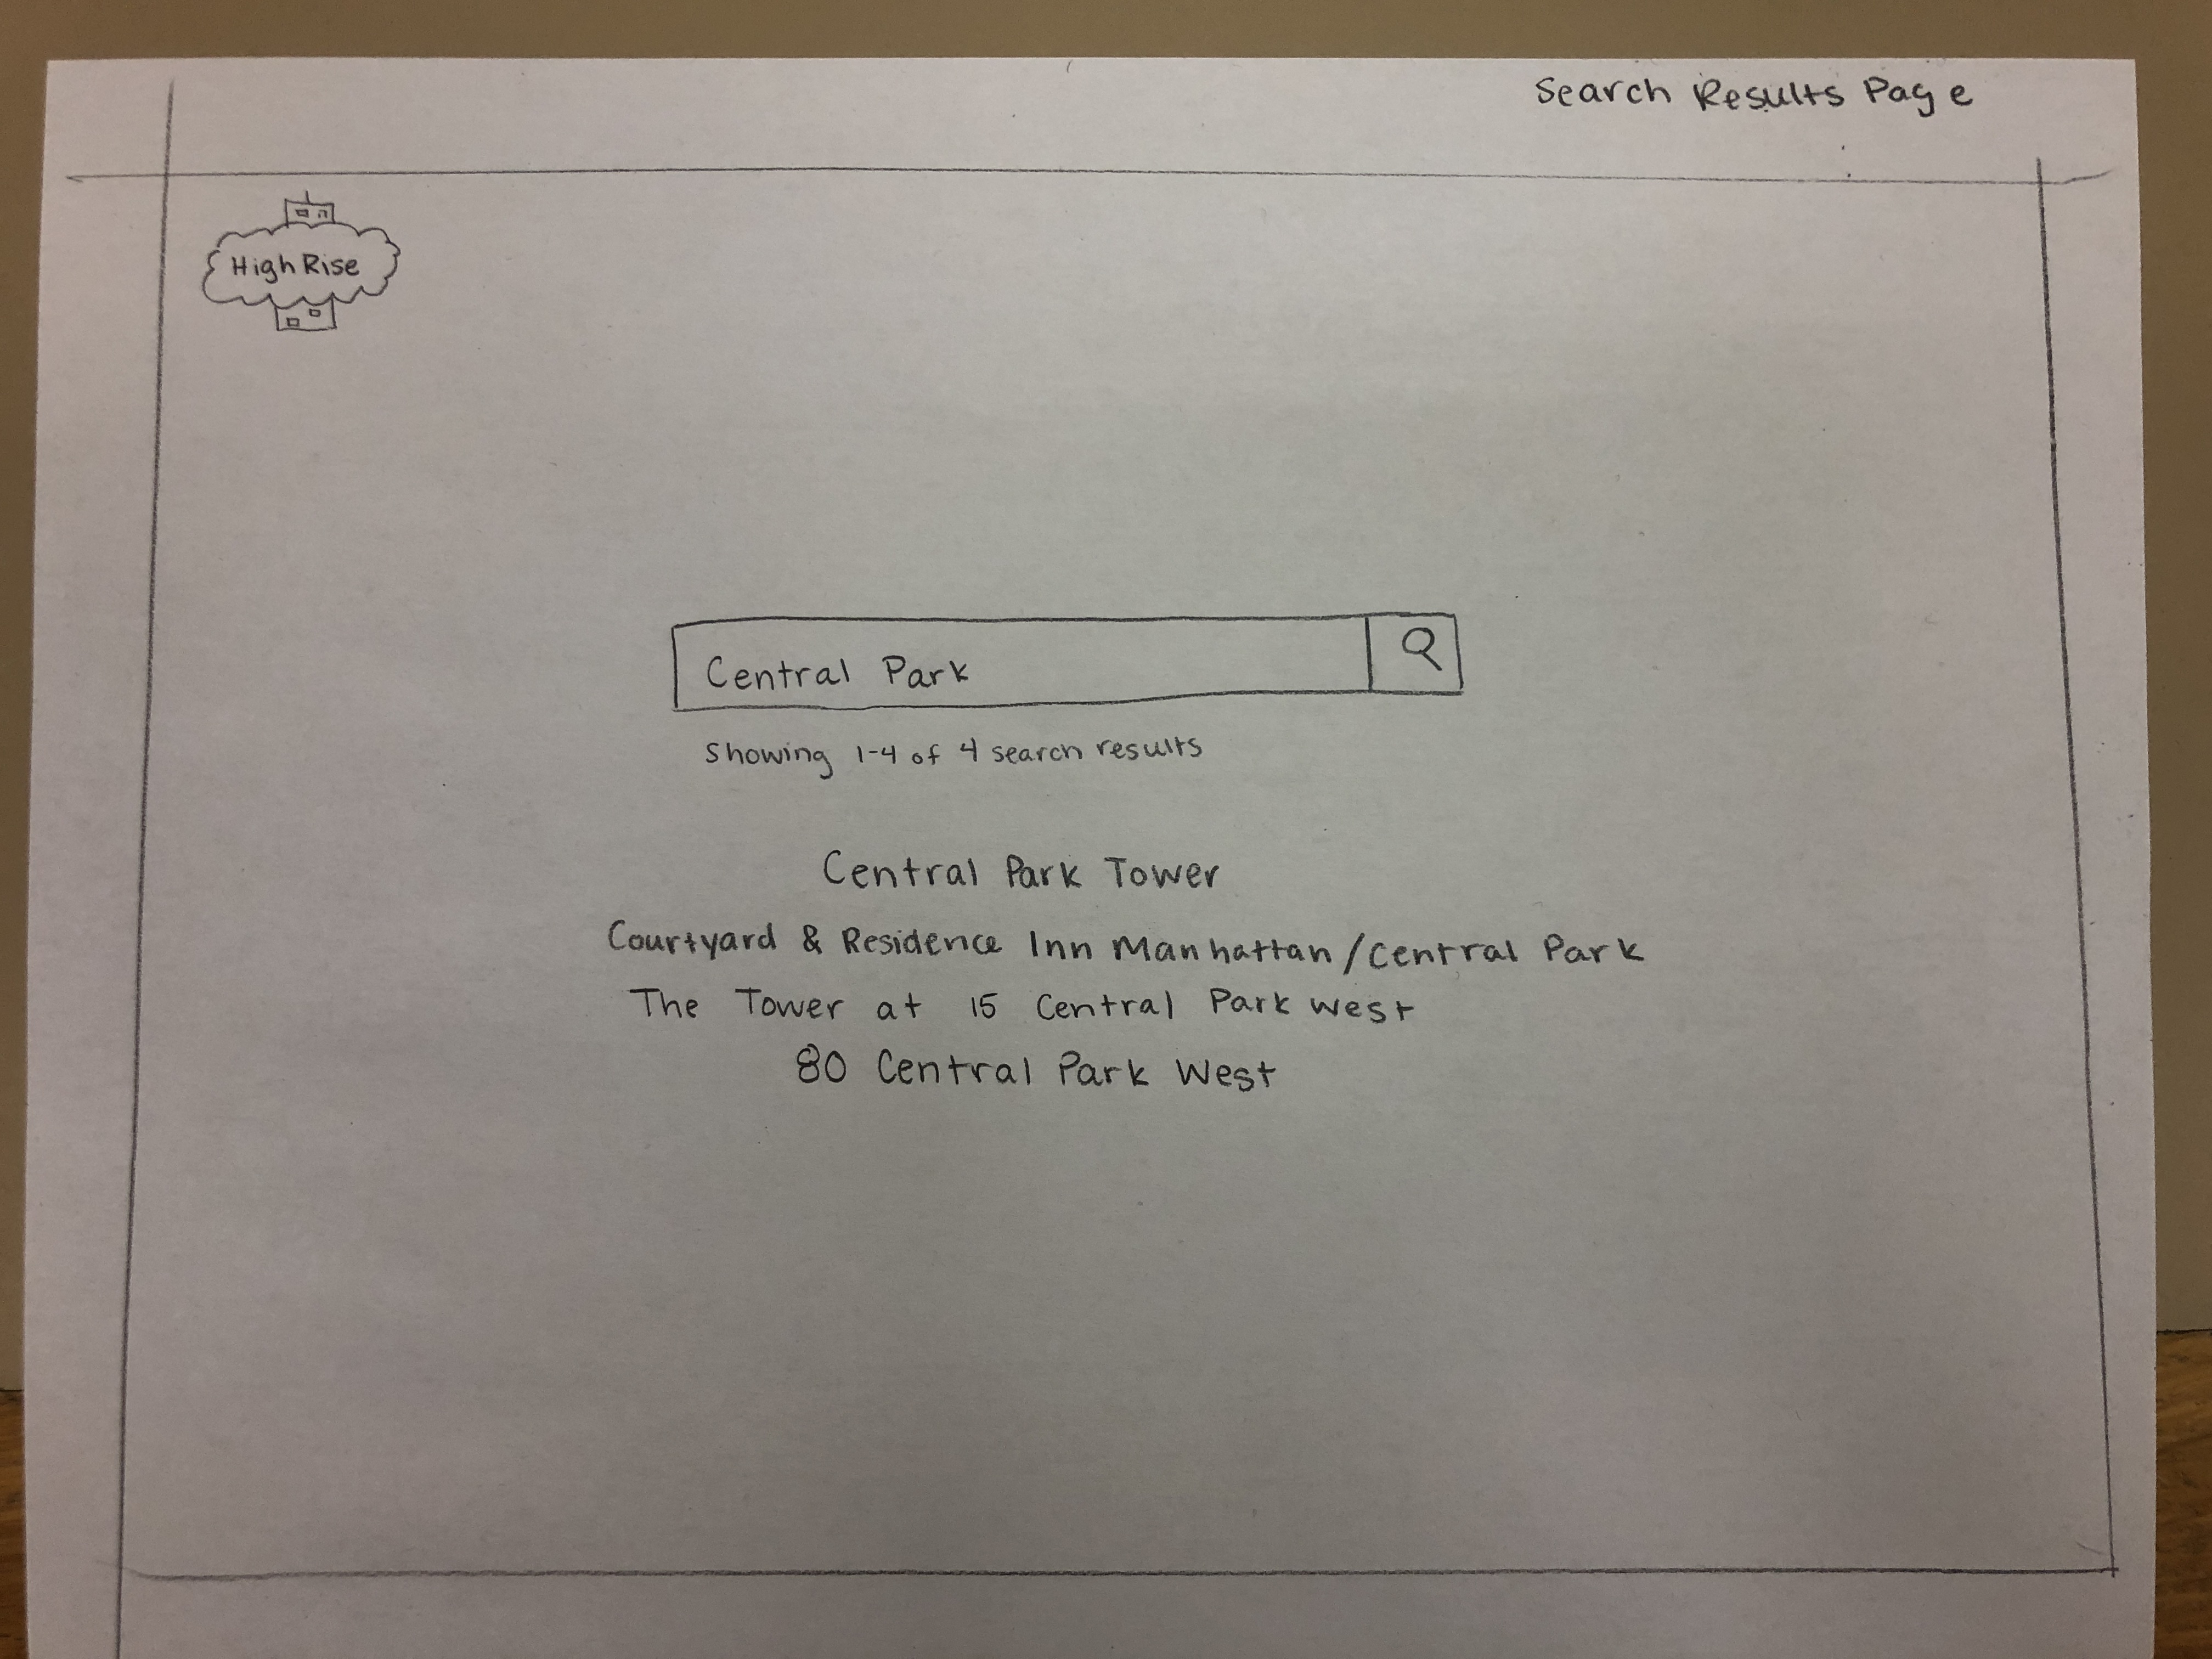 Search Results Page
High Rise
Central Park
Showing 1-4 of 4 search results
Central Park Tower
Courtyard & Residence Inn Manhattan/Central Park
The Tower at 15 Central Park West
80 Central Park West